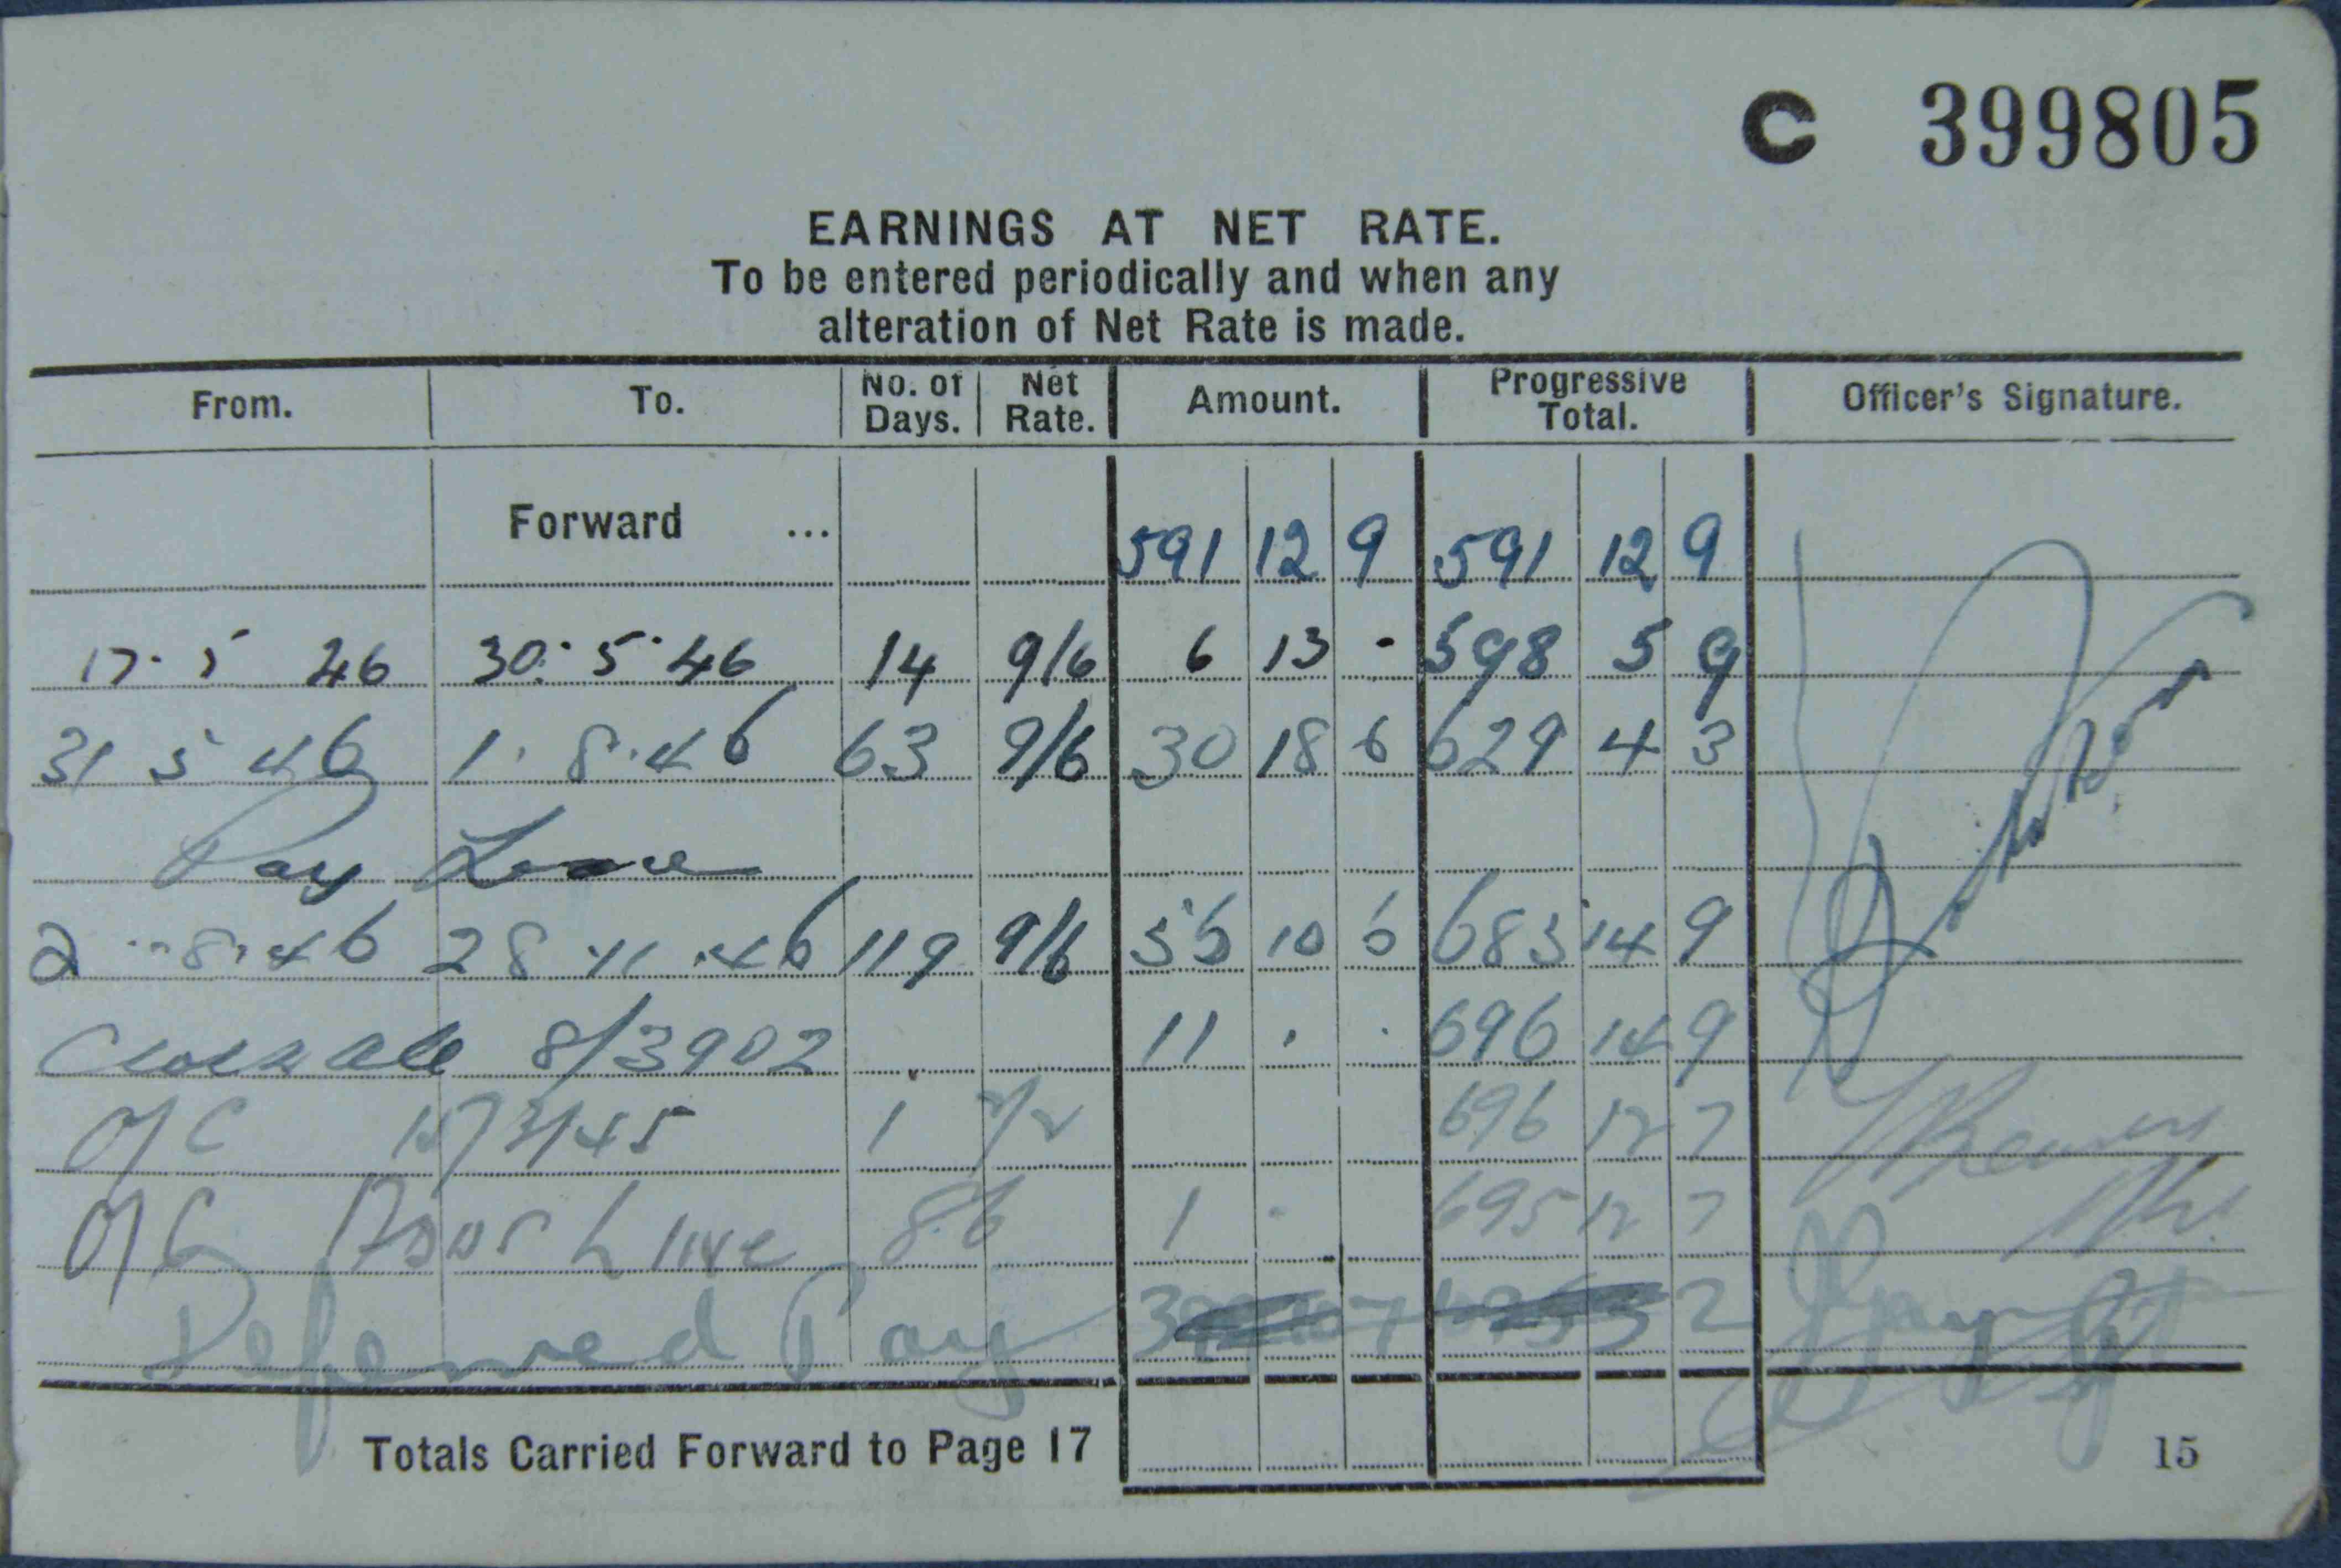 C 399805
EARNINGS AT NET RATE.
To be entered periodically and when any
alteration of Net Rate is made.
From. To. No. of Days. Net Rate. Amount. Progressive Total. Officer's Signature.
Forward ... 591 12 9 591 12 9
17. 5 46 30. 5. 46 14 9/6 6 13 - 598 5 9
31 5 46 1. 8. 46 63 9/6 30 18 6 629 4 3
Pay Leave
2 8. 46 28 11 46 119 9/6 10 6 685 14 9
8/3902 11 . . 696 14 9
O/C 15/3/45 1 2/2 696 12 7
O/C 86 1 - 695 12 7
Deferred Pay 2
Totals Carried Forward to Page 17
15